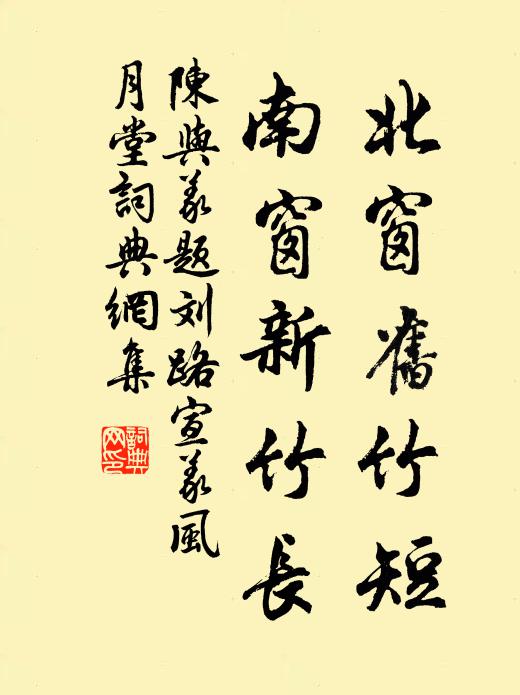 北窗舊竹短
南窗新竹長
陳與义題刘路宣义風
月堂詞典網集
詞典网印